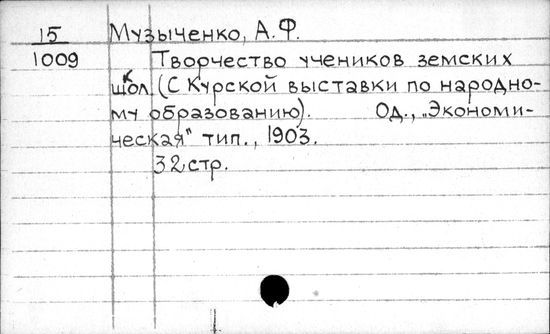 15 Музыченко, А.Ф.
1009 Творчество учеников земских
школ. (С Курской выставки по народно-
му образованию). Од., „Экономи-
ческая" тип., 1903.
32 стр.